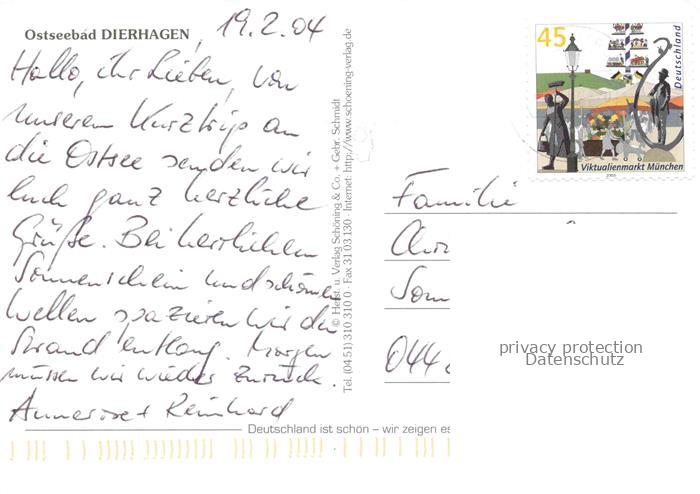 Ostseebad DIERHAGEN, 19.2.04
Hallo, ihr Lieben, von
unserem Kurztrip an
die Ostsee senden wir
Euch ganz herzliche
Grüße. Bei herrlichem
Sonnenschein und schönen
Wellen spazieren wir den
Strand entlang. Morgen
müssen wir wieder zurück.
Annerose + Reinhard
Deutschland ist schön – wir zeigen es
© Herst. u. Verlag Schöning & Co. + Gebr. Schmidt
Tel. (04 51) 310 310 0 · Fax 31 03 130 · Internet: http://www.schoening-verlag.de
45
Deutschland
Viktualienmarkt München
Familie
044
privacy protection
Datenschutz